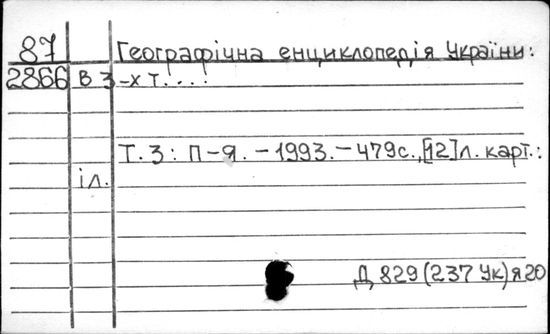 87 Географічна енциклопедія України:
2866 в 3-х т. . . !
Т. 3: П-Я. - 1993. - 479с., [12] л. карт.:
іл.
Д 829(237Ук)я20